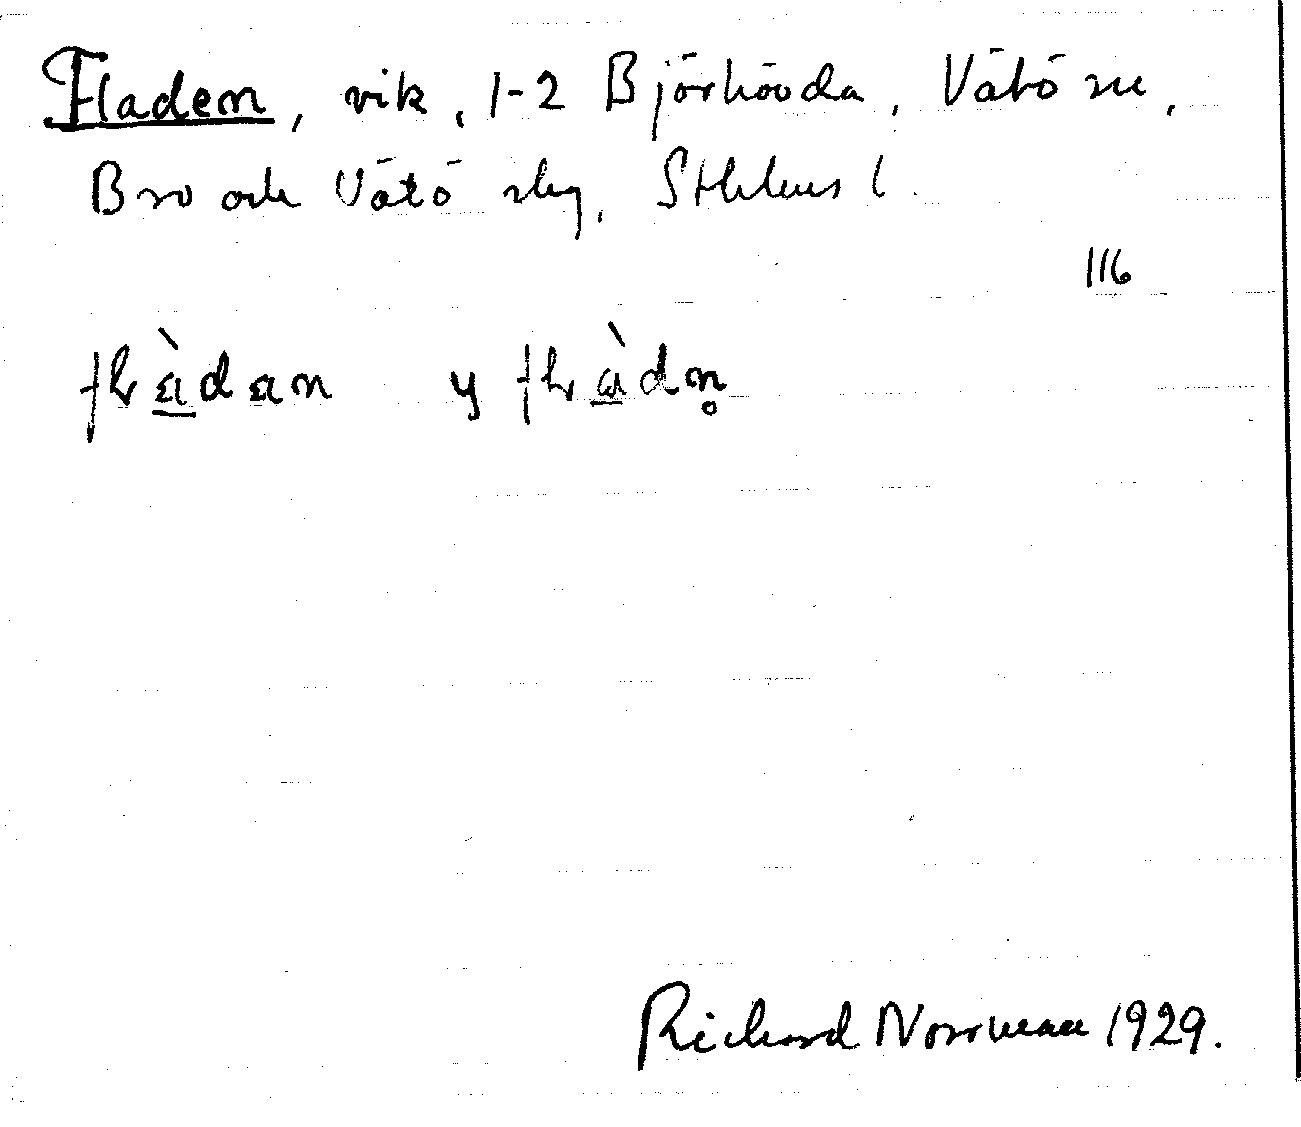 Fladen, vik, 1-2 Björhövda, Vätö sn,
Bro och Vätö skg, Sthlms l.
116
y
Richard Norrman 1929.